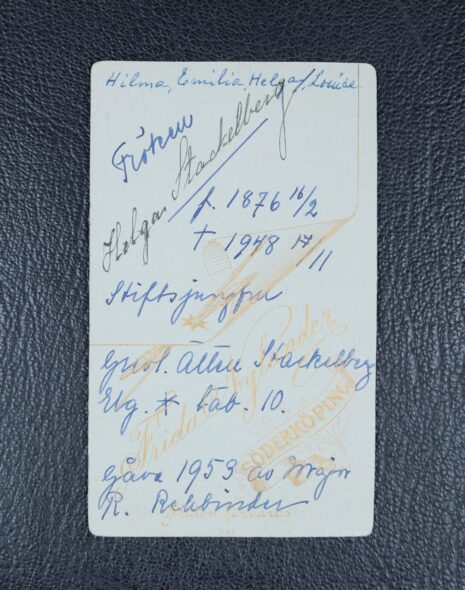 Hilma, Emilia, Helga, Louise
Fröken
Helga Stackelberg
f. 1876 16/2
† 1948 17/11
Stiftsjungfru
Grevl. Ätten Stackelberg
Elg. * tab. 10.
Frida Nylander
SÖDERKÖPING
Gåva 1953 av Major
R. Rehbinder